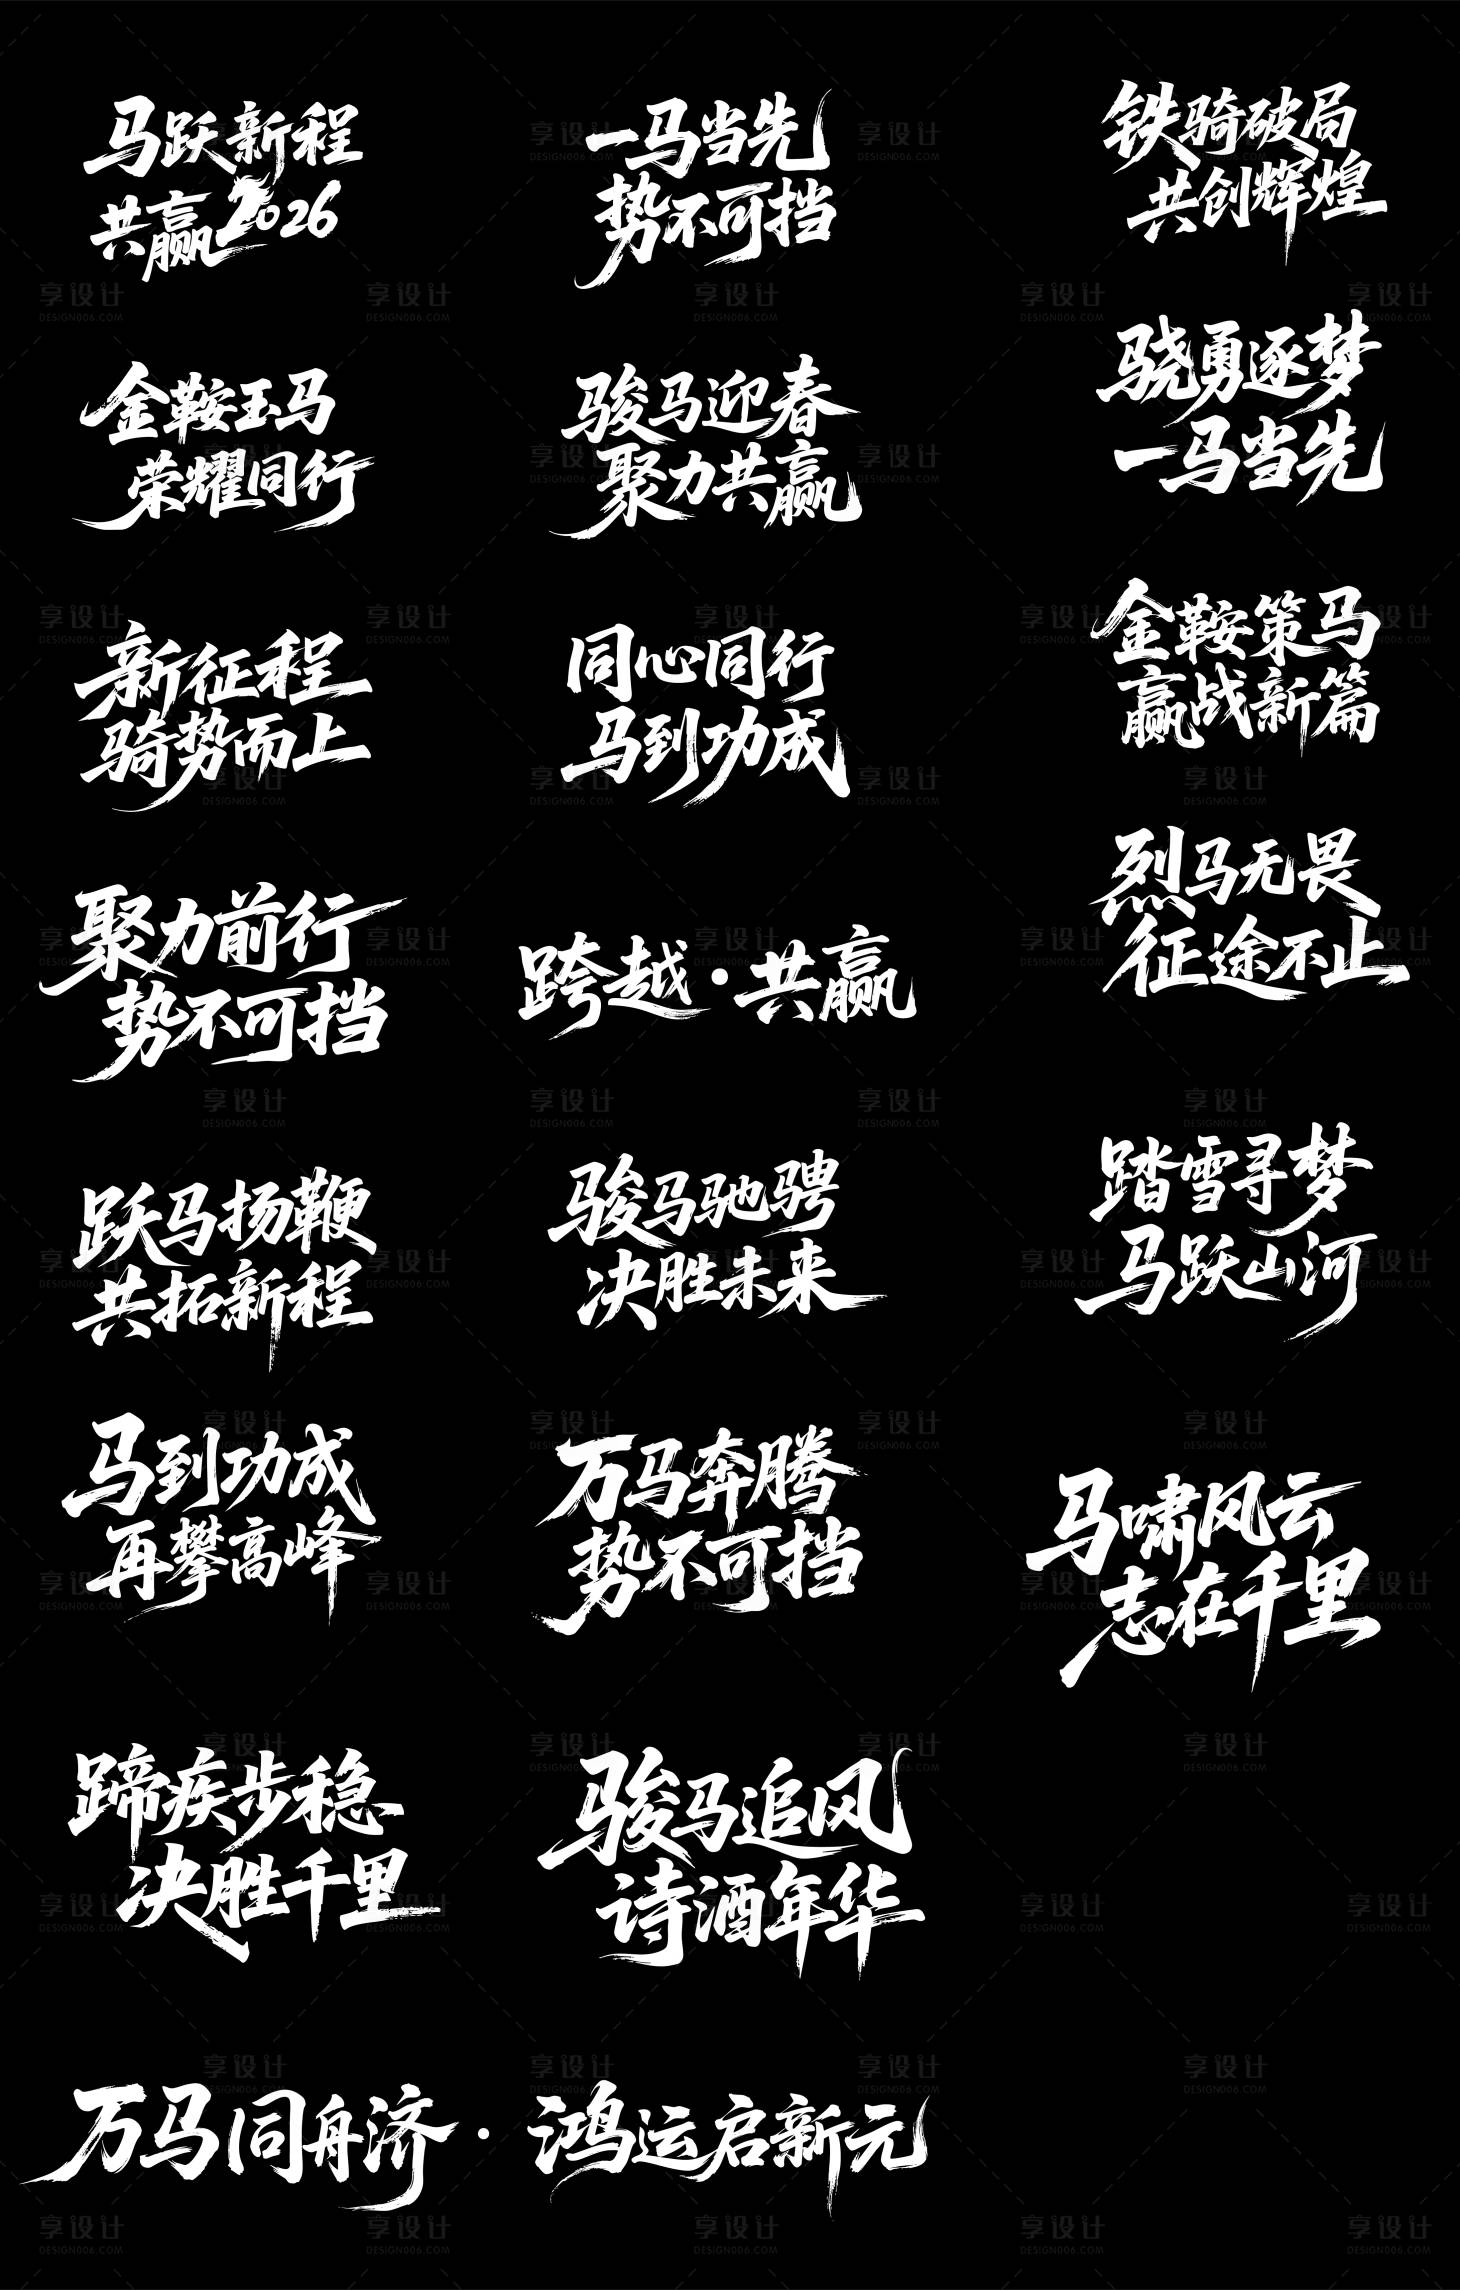 马跃新程
共赢2026
一马当先
势不可挡
铁骑破局
共创辉煌
金鞍玉马
荣耀同行
骏马迎春
聚力共赢
骁勇逐梦
一马当先
新征程
骑势而上
同心同行
马到功成
金鞍策马
赢战新篇
聚力前行
势不可挡
跨越·共赢
烈马无畏
征途不止
跃马扬鞭
共拓新程
骏马驰骋
决胜未来
踏雪寻梦
马跃山河
马到功成
再攀高峰
万马奔腾
势不可挡
马啸风云
志在千里
蹄疾步稳
决胜千里
骏马追风
诗酒年华
万马同舟济·鸿运启新元
享设计
DESIGN006.COM